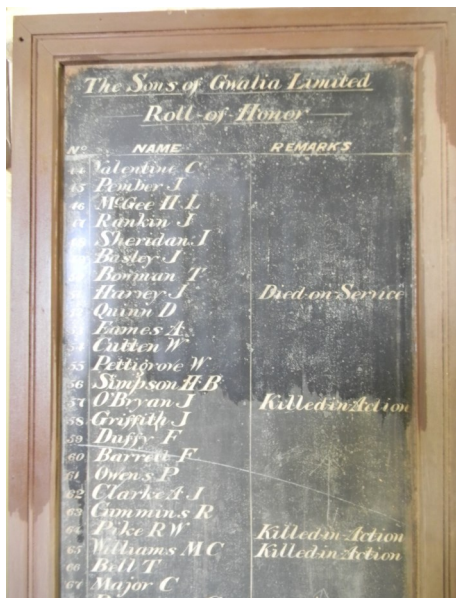 The Sons of Gwalia Limited
Roll of Honor
No NAME REMARKS
44 Valentine C
45 Pember J
46 McGee H.L
47 Rankin J
48 Sheridan.I
Basley J
Bowman T
Harvey J Died on Service
Quinn D
53 Eames A.
54 Cutten W
55 Pettigrove W
56 Simpson H.B
57 O'Bryan J Killed in Action
58 Griffith J
59 Duffy F
60 Barrett F
61 Owens P
62 Clarke A J
63 Cummins R
64 Pike R W Killed in Action
65 Williams M C Killed in Action
66 Bell T
67 Major C